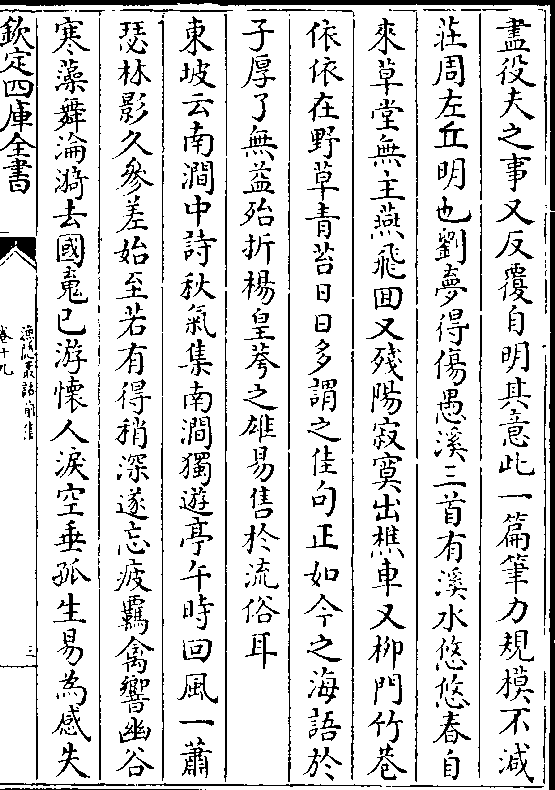 盡役夫之事又反覆自明其意此一篇筆力規模不減
莊周左丘明也劉夢得傷愚溪三首有溪水悠悠春自
來草堂無主燕飛回又殘陽寂寞出樵車又柳門竹巷
依依在野草青苔日日多謂之佳句正如今之海語於
子厚了無益殆折楊皇荂之雄易售於流俗耳
東坡云南澗中詩秋氣集南澗獨遊亭午時回風一蕭
瑟林影久參差始至若有得稍深遂忘疲羈禽響幽谷
寒藻舞淪漪去國䰟已游懷人淚空垂孤生易為感失
欽定四庫全書
漁隱叢話前集
卷十九
三